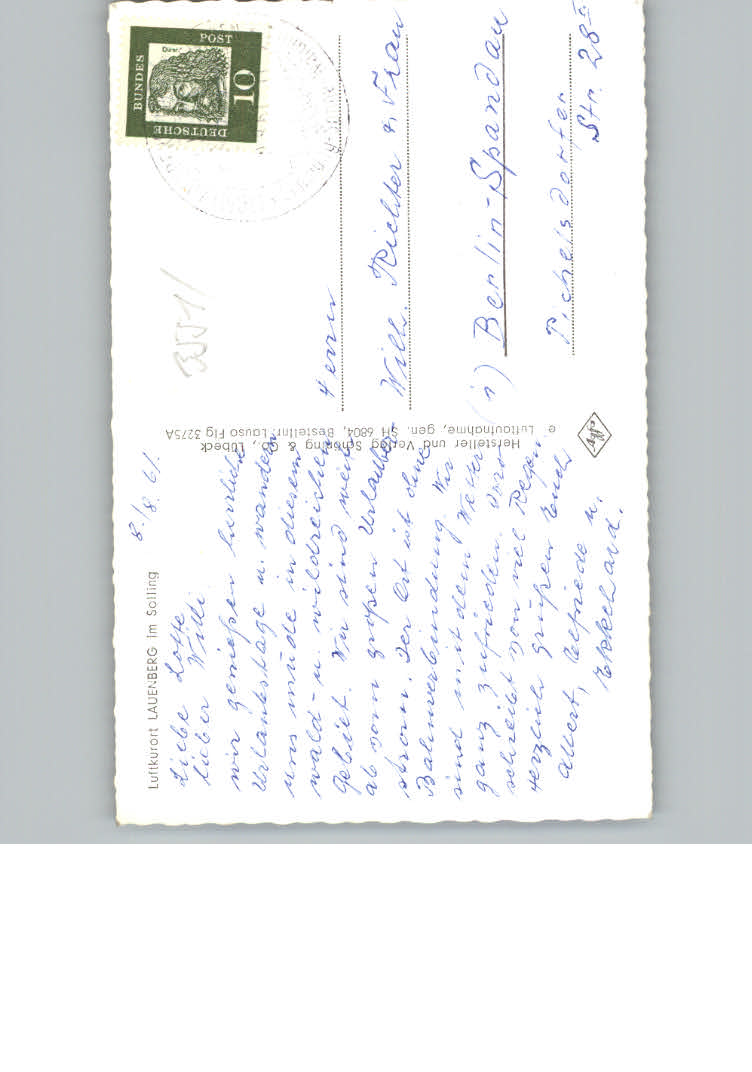 Luftkurort LAUENBERG im Solling
8./8. 61.
Liebe Lotte
lieber Willi
wir genießen herrliche
Urlaubstage u. wandern
uns müde in diesem
wald- u. wildreichen
Gebiet. Wir sind weit
ab vom großen Urlauber-
strom. Der Ort ist ohne
Bahnverbindung. Wir
sind mit dem Wetter
ganz zufrieden. Dort
schreibt von viel Regen.
Herzlich grüßen Euch
Albert, Elfriede u.
Ekkehard.
Hersteller und Verlag Schöning & Co., Lübeck
Luftaufnahme, gen. SH 6804, Bestellnr. Lauso Flg 3275A
DEUTSCHE
BUNDES
POST
10
Herrn
Willi. Richter u. Frau
(1) Berlin-Spandau
Pichelsdorfer
Str. 28 I